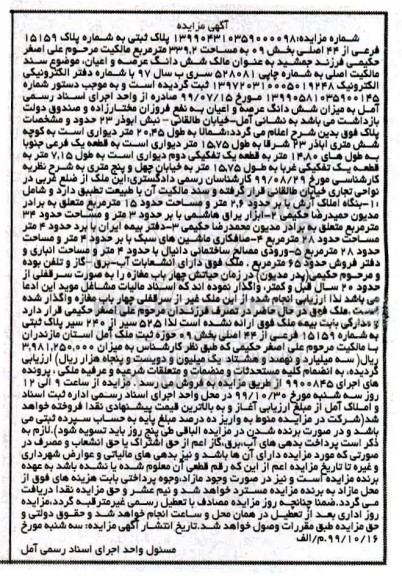 آگهی مزایده
شماره مزایده:۱۳۹۹۰۴۳۱۰۳۵۹۰۰۰۰۹۸ پلاک ثبتی به شماره پلاک ۱۵۱۵۹
فرعی از ۴۴ اصلی بخش ۰۹ به مساحت ۳۳۹٫۲ مترمربع مالکیت مرحوم علی اصغر
حکیمی فرزند جمشید به عنوان مالک شش دانگ عرصه و اعیان، موضوع سند
مالکیت اصلی به شماره چاپی ۵۲۸۰۸۱ سری ب سال ۹۷ با شماره دفتر الکترونیکی
الکترونیک ۱۳۹۷۲۰۳۱۰۰۰۵۰۱۹۲۴۸ ثبت گردیده است و به موجب دستور شماره
۱۳۹۹۰۵۸۱۰۳۵۹۰۰۰۱۴۵ مورخ ۹۹/۰۷/۱۵ صادره از واحد اجرای اسناد رسمی
آمل به میزان شش دانگ عرصه و اعیان به نفع فروزان مختارزاده و صندوق دولت
بازداشت می باشد به نشانی آمل-خیابان طالقانی - نبش اباذر ۲۳ حدود و مشخصات
پلاک فوق بدین شرح اعلام می گردد:شمالا به طول ۲۰٫۴۵ متر دیواری است به کوچه
شش متری اباذر ۲۳ شرقا به طول ۱۵٫۷۵ متر دیواری است به قطعه یک فرعی جنوبا
به طول های ۱۴٫۸۰ متر به قطعه یک تفکیکی دوم دیواری است به طول ۷٫۱۵ متر به
قطعه یک تفکیکی غربا به طول ۱۵٫۷۵ متر به خیابان چهل و پنج متری به شرح نظریه
کارشناسی مورخ ۹۹/۰۸/۲۹ کارشناسان رسمی دادگستری،این ملک از ضلع غربی در
نواحی تجاری خیابان طالقانی قرار گرفته و سند مالکیت آن با طبیعت تطبیق دارد و شامل
۱-بنگاه املاک آرش با بر حدود ۲٫۶ متر و مساحت حدود ۱۵ مترمربع متعلق به برادر
مدیون حمیدرضا حکیمی ۲-ابزار یراق هاشمی با بر حدود ۳ متر و مساحت حدود ۳۴
مترمربع متعلق به برادر مدیون محمدرضا حکیمی ۳-دفتر بیمه ایران با بر حدود ۴ متر و
مساحت حدود ۲۸ مترمربع ۴-صافکاری ماشین های سبک با بر حدود ۴ متر و مساحت
حدود ۲۸ مترمربع ۵-ورودی مصالح ساختمانی دانیال با حدود ۴ متر و مساحت انباری و
دفتر فروش حدود ۶۵ متر مربع . ملک فوق دارای انشعابات آب-برق-گاز و تلفن بوده
و مرحوم حکیمی(پدر مدیون) در زمان حیاتش چهار باب مغازه را به صورت سرقفلی از
حدود ۲۰ سال قبل و کمتر، واگذار نموده اند که اسناد مالیات مشاغل موید این ادعا
می باشد لذا ارزیابی انجام شده از این ملک غیر از سرقفلی چهار باب مغازه واگذار شده
است. ملک فوق در حال حاضر در تصرف فرزندان مرحوم علی اصغر حکیمی قرار دارد
و مدارکی بابت بیمه ملک فوق ارائه نشده است لذا ۵۲۵ سیر از ۲۴۰ سیر پلاک ثبتی
به شماره ۱۵۱۵۹ فرعی از ۴۴ اصلی بخش ۰۹ حوزه ثبت ملک آمل استان مازندران
با مالکیت مرحوم علی اصغر حکیمی که طبق نظر کارشناس به میزان ۳٫۹۸۱٫۲۵۰٫۰۰۰
ریال( سه میلیارد و نهصد و هشتاد یک میلیون و دویست و پنجاه هزار ریال) ارزیابی
گردیده، به انضمام کلیه مستحدثات و منضمات و متعلقات شرعیه و عرفیه ملکی ، پرونده
های اجرای ۹۹۰۰۸۴۵ از طریق مزایده به فروش می رسد . مزایده از ساعت ۹ الی ۱۲
روز سه شنبه مورخ ۹۹/۱۰/۳۰ در محل واحد اجرای اسناد رسمی اداره ثبت اسناد
و املاک آمل از مبلغ ارزیابی آغاز و به بالاترین قیمت پیشنهادی نقدا فروخته خواهد
شد(شرکت در مزایده منوط به واریز ده درصد مبلغ پایه به حساب سپرده ثبتی می
باشد و در صورت برنده شدن در مزایده الباقی طی پنج روز باید تسویه شود).لازم به
ذکر است پرداخت بدهی های آب،برق،گاز اعم از حق اشتراک یا حق انشعاب و مصرف در
صورتی که مورد مزایده دارای آن ها باشد و نیز بدهی های مالیاتی و عوارض شهرداری
و غیره تا تاریخ مزایده اعم از این که رقم قطعی آن معلوم شده یا نشده باشد به عهده
برنده مزایده است و نیز در صورت وجود مازاد،وجوه پرداختی بابت هزینه های فوق از
محل مازاد به برنده مزایده مسترد خواهد شد و نیم عشر و حق مزایده نقدا دریافت
می گردد.ضمنا چنانچه روز مزایده مصادف با تعطیل رسمی غیرمترقبه گردد،مزایده
روز اداری بعد از تعطیل در همان محل و ساعت انجام خواهد شد و حقوق دولتی و
حق مزایده طبق مقررات وصول خواهد شد.تاریخ انتشار آگهی مزایده: سه شنبه مورخ
۹۹/۱۰/۱۶.م/الف
مسئول واحد اجرای اسناد رسمی آمل